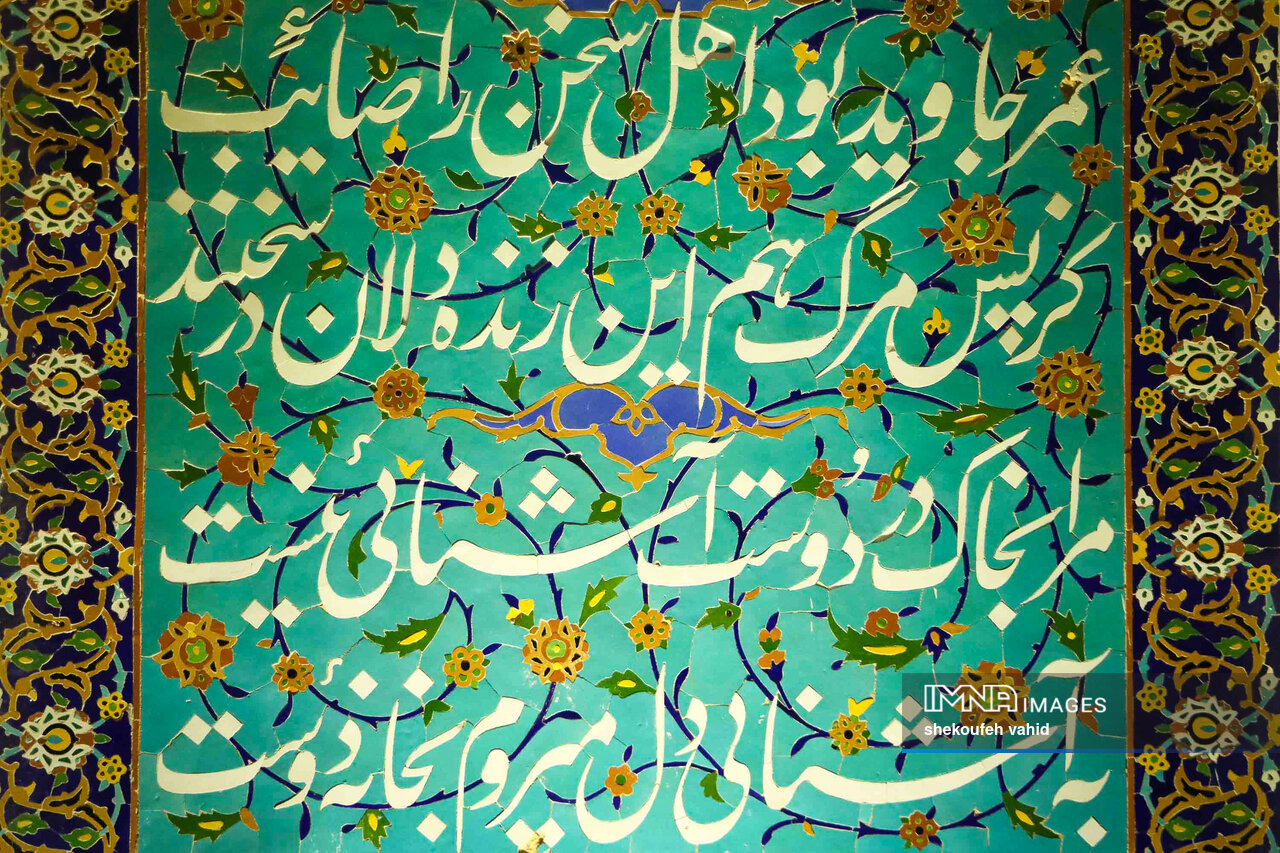 عمر جاوید بود اهل سخن را صائب
کز پس مرگ هم این زنده دلان در سخنند
مرا بخاک در دوست آشنائی نیست
به آشنائی دل میروم بخانه دوست
IMNA IMAGES
shekoufeh vahid